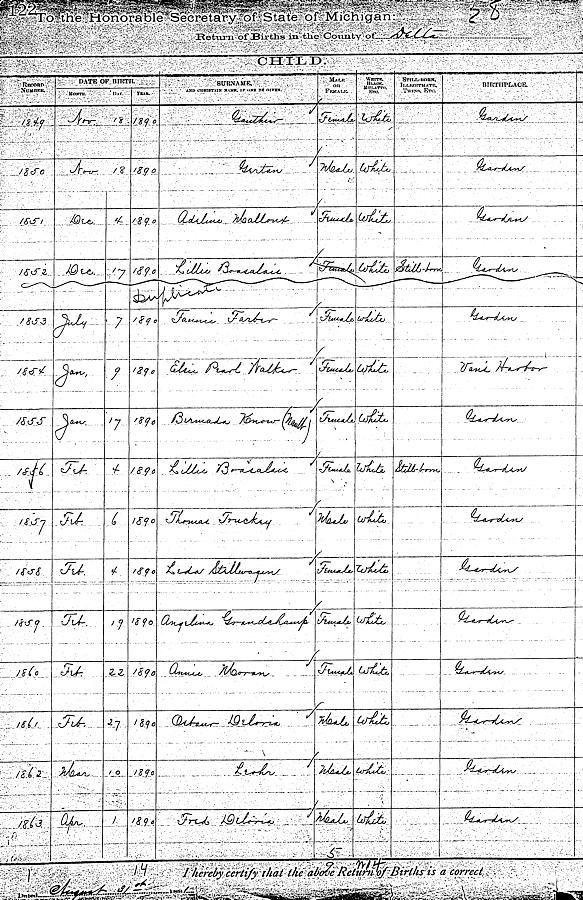 122 To the Honorable Secretary of State of Michigan: 28
Return of Births in the County of Delta
CHILD.
RECORD NUMBER. DATE OF BIRTH. MONTH. DAY. YEAR. SURNAME, AND CHRISTIAN NAME, IF ONE BE GIVEN. MALE OR FEMALE. WHITE, BLACK, MULATTO, ETC. STILL-BORN, ILLEGITIMATE, TWINS, ETC. BIRTHPLACE.
1849 Nov. 18 1890 Gauthier Female White Garden
1850 Nov 18 1890 Male White Garden
1851 Dec 4 1890 Adeline Malloux Female White Garden
1852 Dec. 17 1890 Lillie Boasalaie Female White Still-born Garden
Duplicate
1853 July 7 1890 Fannie Farber Female White Garden
1854 Jan, 9 1890 Elsie Pearl Walker Female White Van's Harbor
1855 Jan. 17 1890 Bermada Female White Garden
1856 Feb 4 1890 Lillie Boasalaie Female White Still-born Garden
1857 Feb. 6 1890 Thomas Truckey Male White Garden
1858 Feb. 4 1890 Leda Stillwagen Female White Garden
1859 Feb. 19 1890 Angelina Grandchamp Female White Garden
1860 Feb. 22 1890 Annie Moran Female White Garden
1861 Feb. 27 1890 Deloria Male White Garden
1862 Mar 10 1890 Male White Garden
1863 Apr. 1 1890 Fred Deloria Male White Garden
5
14 I hereby certify that the above Return of Births is a correct
Dated August 31st